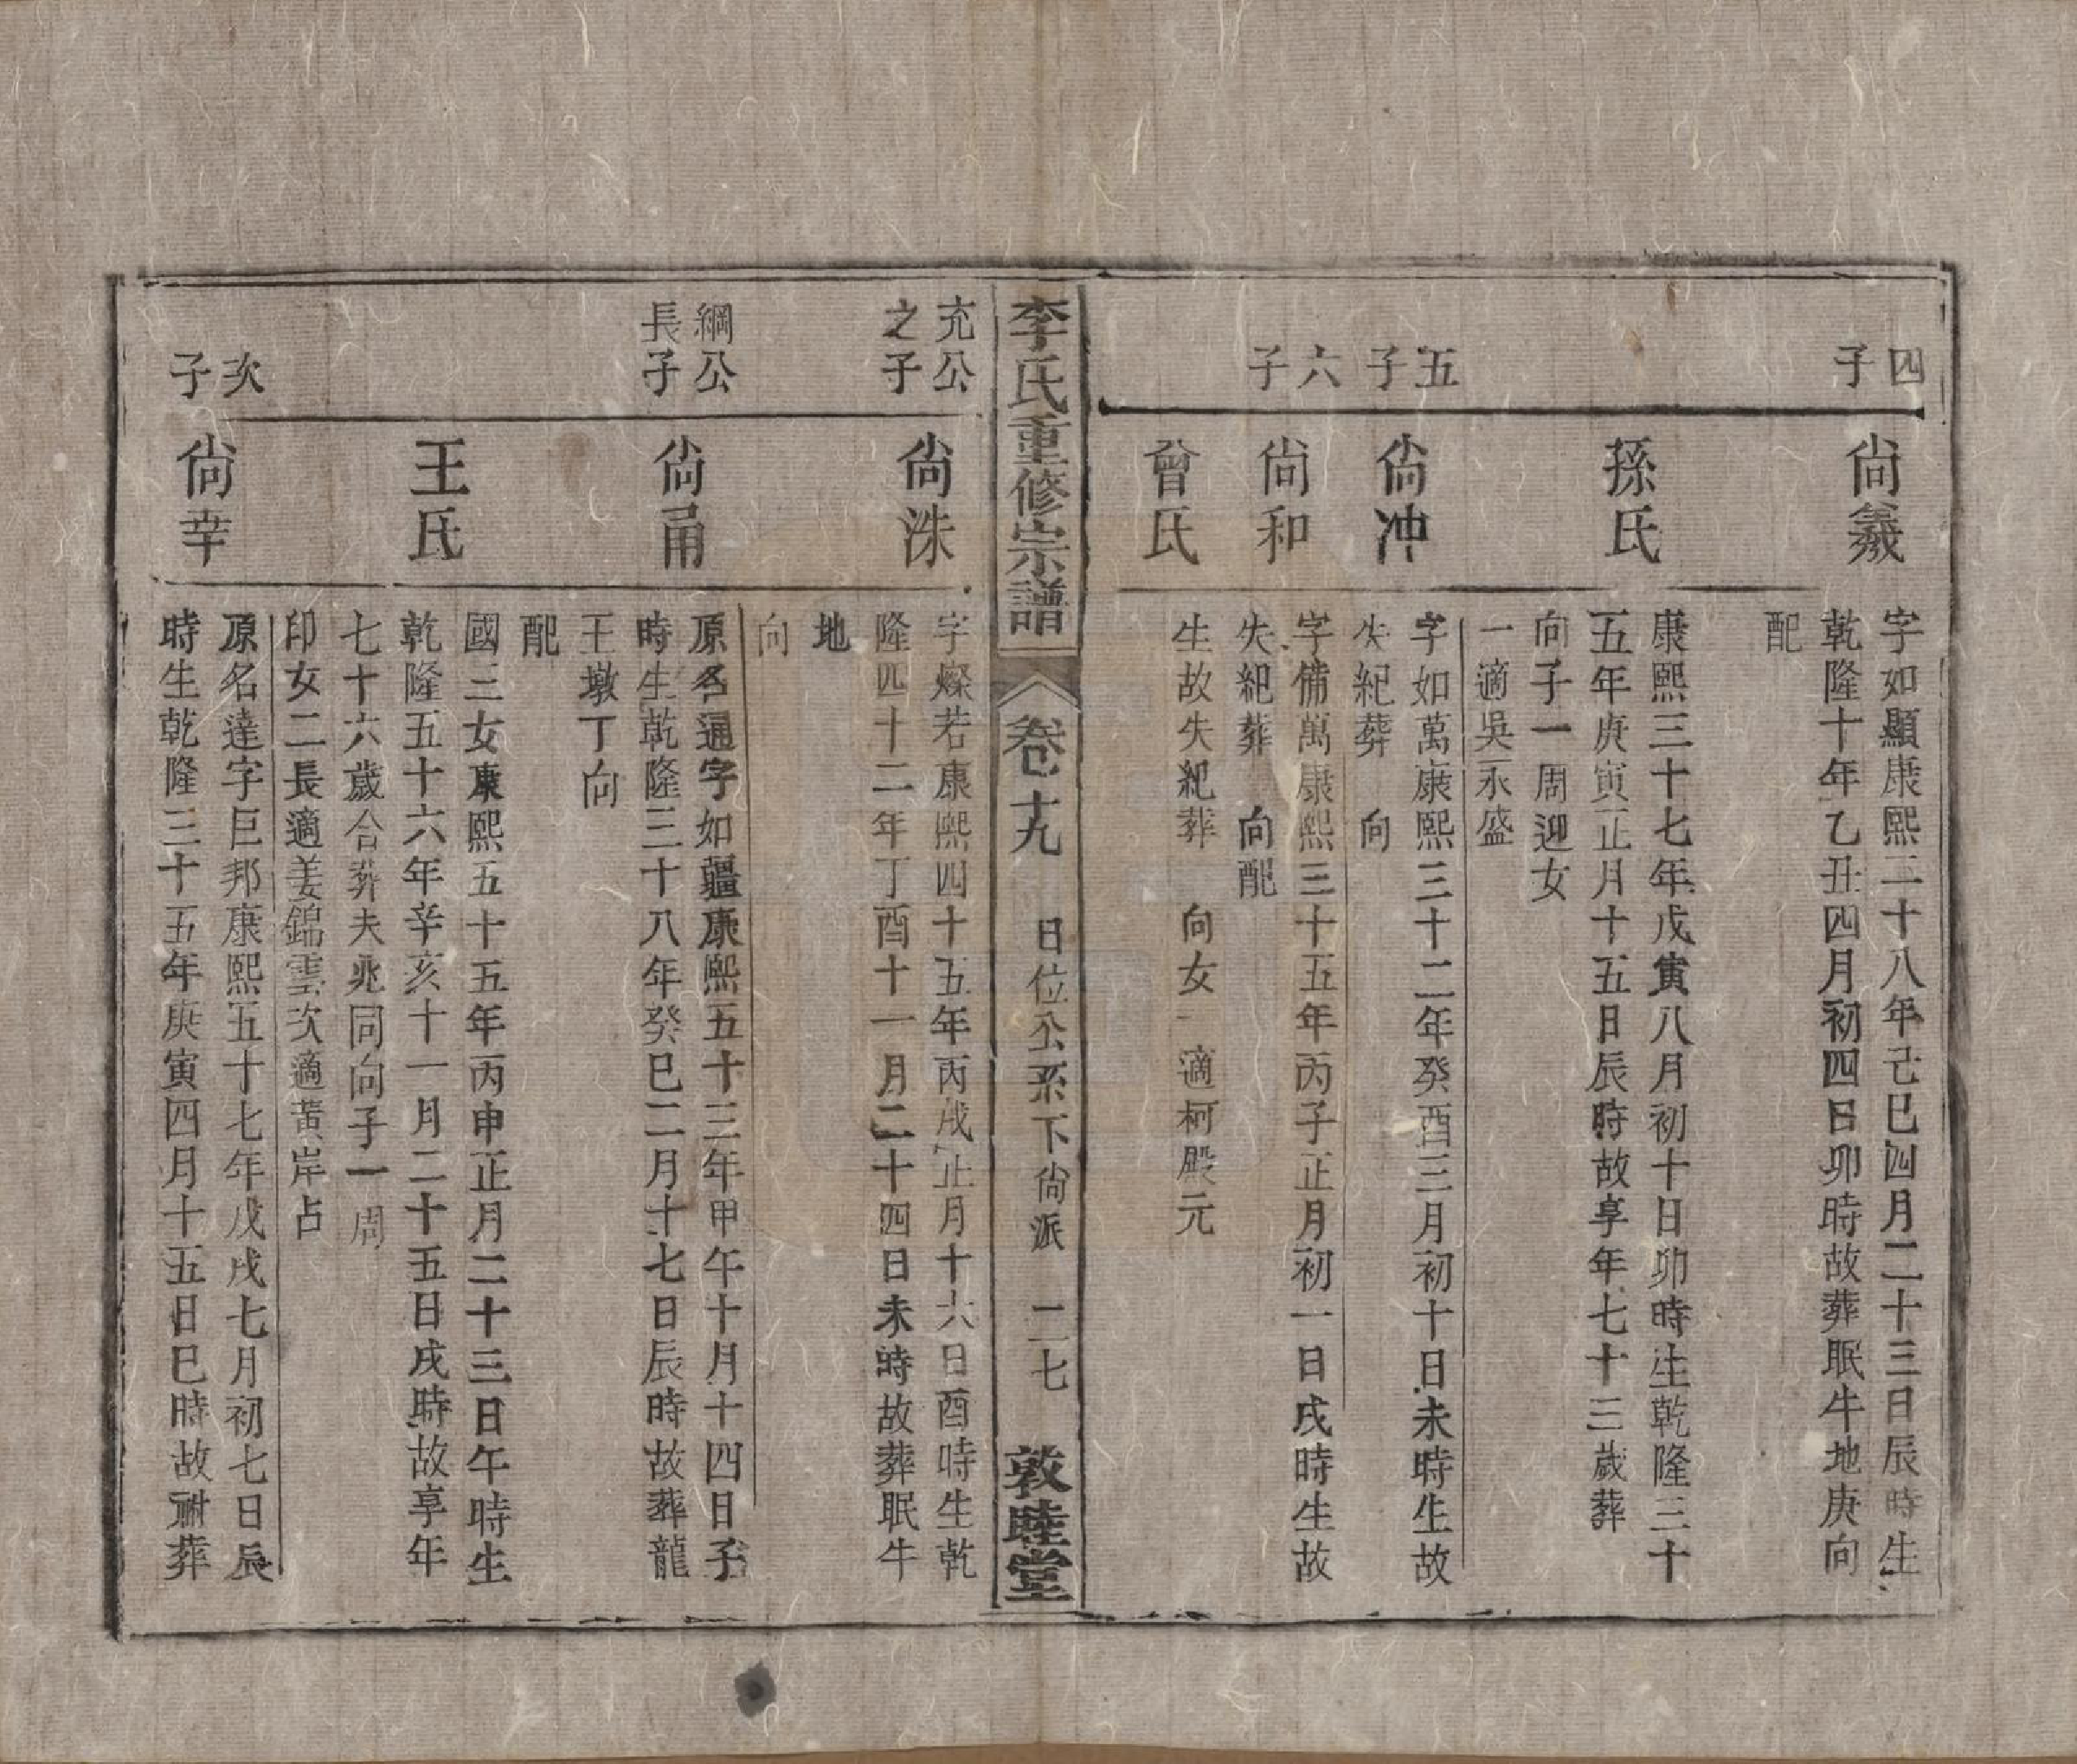 四子
尙羲
字如顯康熙二十八年己巳四月二十三日辰時生
乾隆十年乙丑四月初四日卯時故葬眠牛地庚向
配
孫氏
康熙三十七年戊寅八月初十日卯時生乾隆三十
五年庚寅正月十五日辰時故享年七十三歲葬
向子一周迎女
一適吳永盛
五子
尙冲
字如萬康熙三十二年癸酉三月初十日未時生故
失紀葬 向
六子
尙和
字備萬康熙三十五年丙子正月初一日戌時生故
失紀葬 向配
曾氏
生故失紀葬 向女一適柯殿元
李氏重修宗譜 卷十九 日位公系下尙派 二七 敦睦堂
充公之子
尙洙
字燦若康熙四十五年丙戌正月十六日酉時生乾
隆四十二年丁酉十一月二十四日未時故葬眠牛
地
向
綱公長子
尙甬
原名通字如疆康熙五十三年甲午十月十四日子
時生乾隆三十八年癸巳二月十七日辰時故葬龍
王墩丁向
配
王氏
國三女康熙五十五年丙申正月二十三日午時生
乾隆五十六年辛亥十一月二十五日戌時故享年
七十六歲合葬夫兆同向子一周
印女二長適姜錦雲次適黃岸占
次子
尙幸
原名達字巨邦康熙五十七年戊戌七月初七日辰
時生乾隆三十五年庚寅四月十五日巳時故祔葬